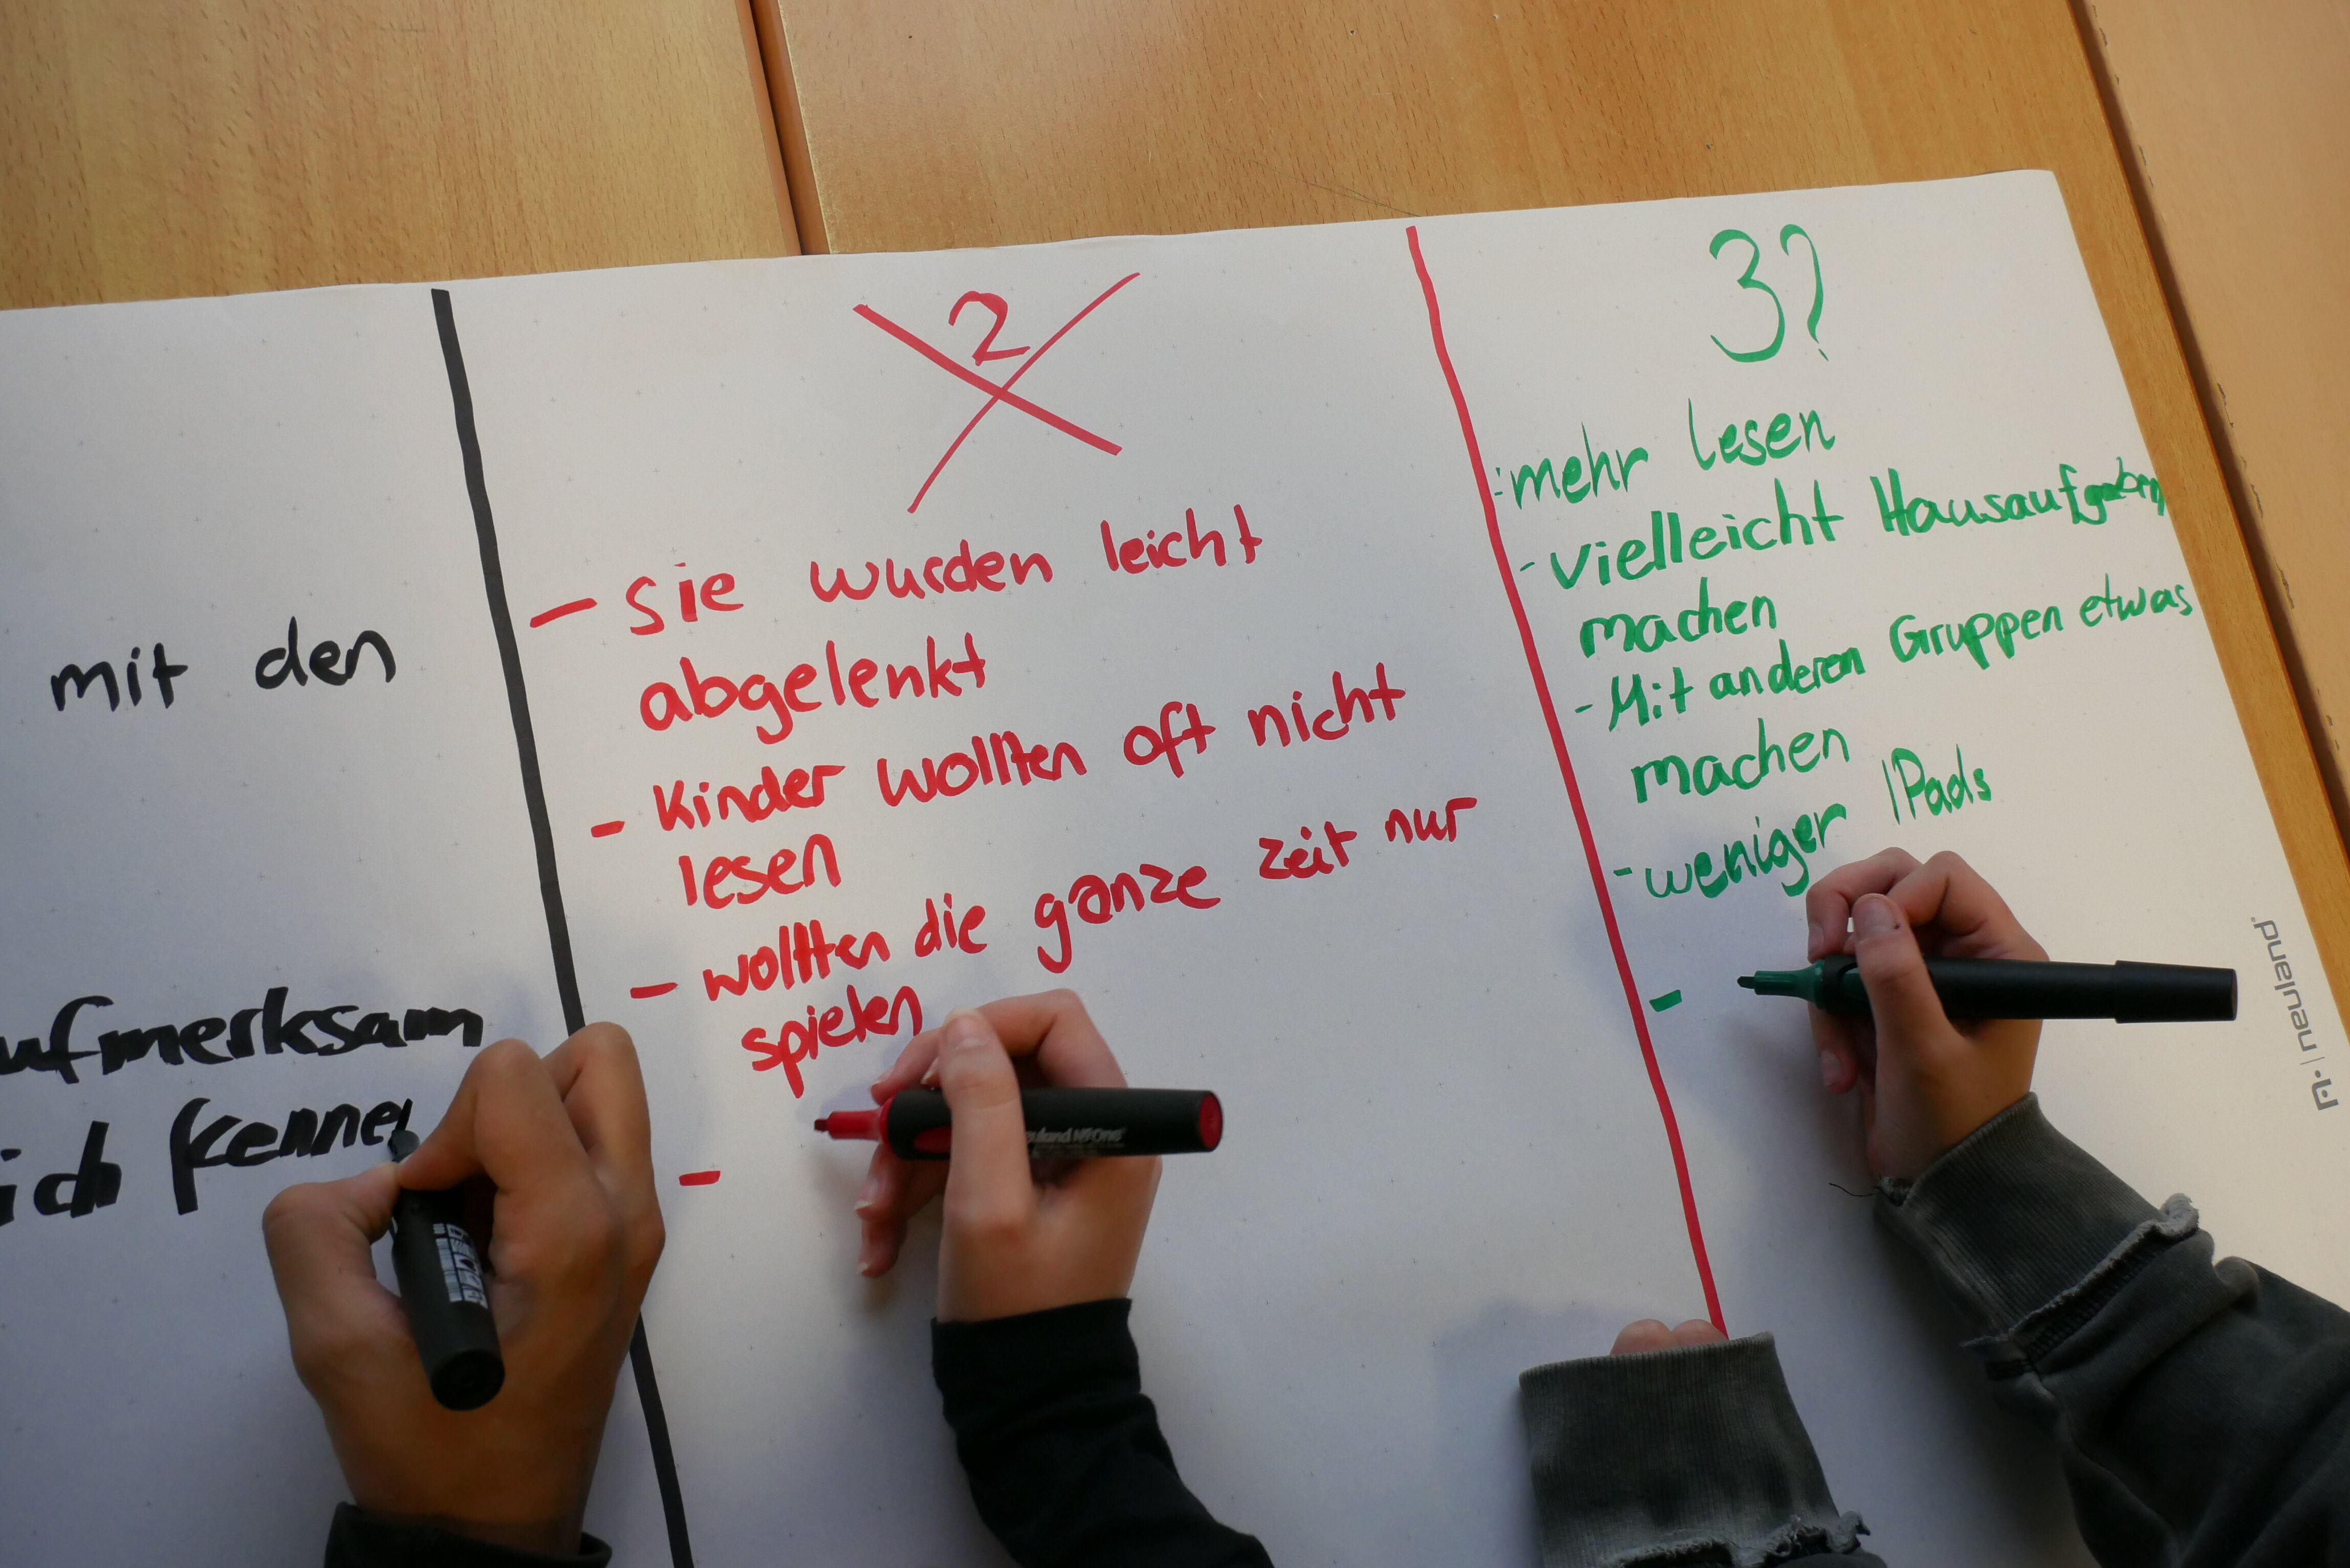 mit den
ufmerksam
ich kenne
2
- sie wurden leicht
abgelenkt
- Kinder wollten oft nicht
lesen
- wollten die ganze zeit nur
spielen
-
3?
- mehr lesen
- vielleicht Hausaufgaben
machen
- Mit anderen Gruppen etwas
machen
- weniger IPads
-
neuland
neuland NºOne